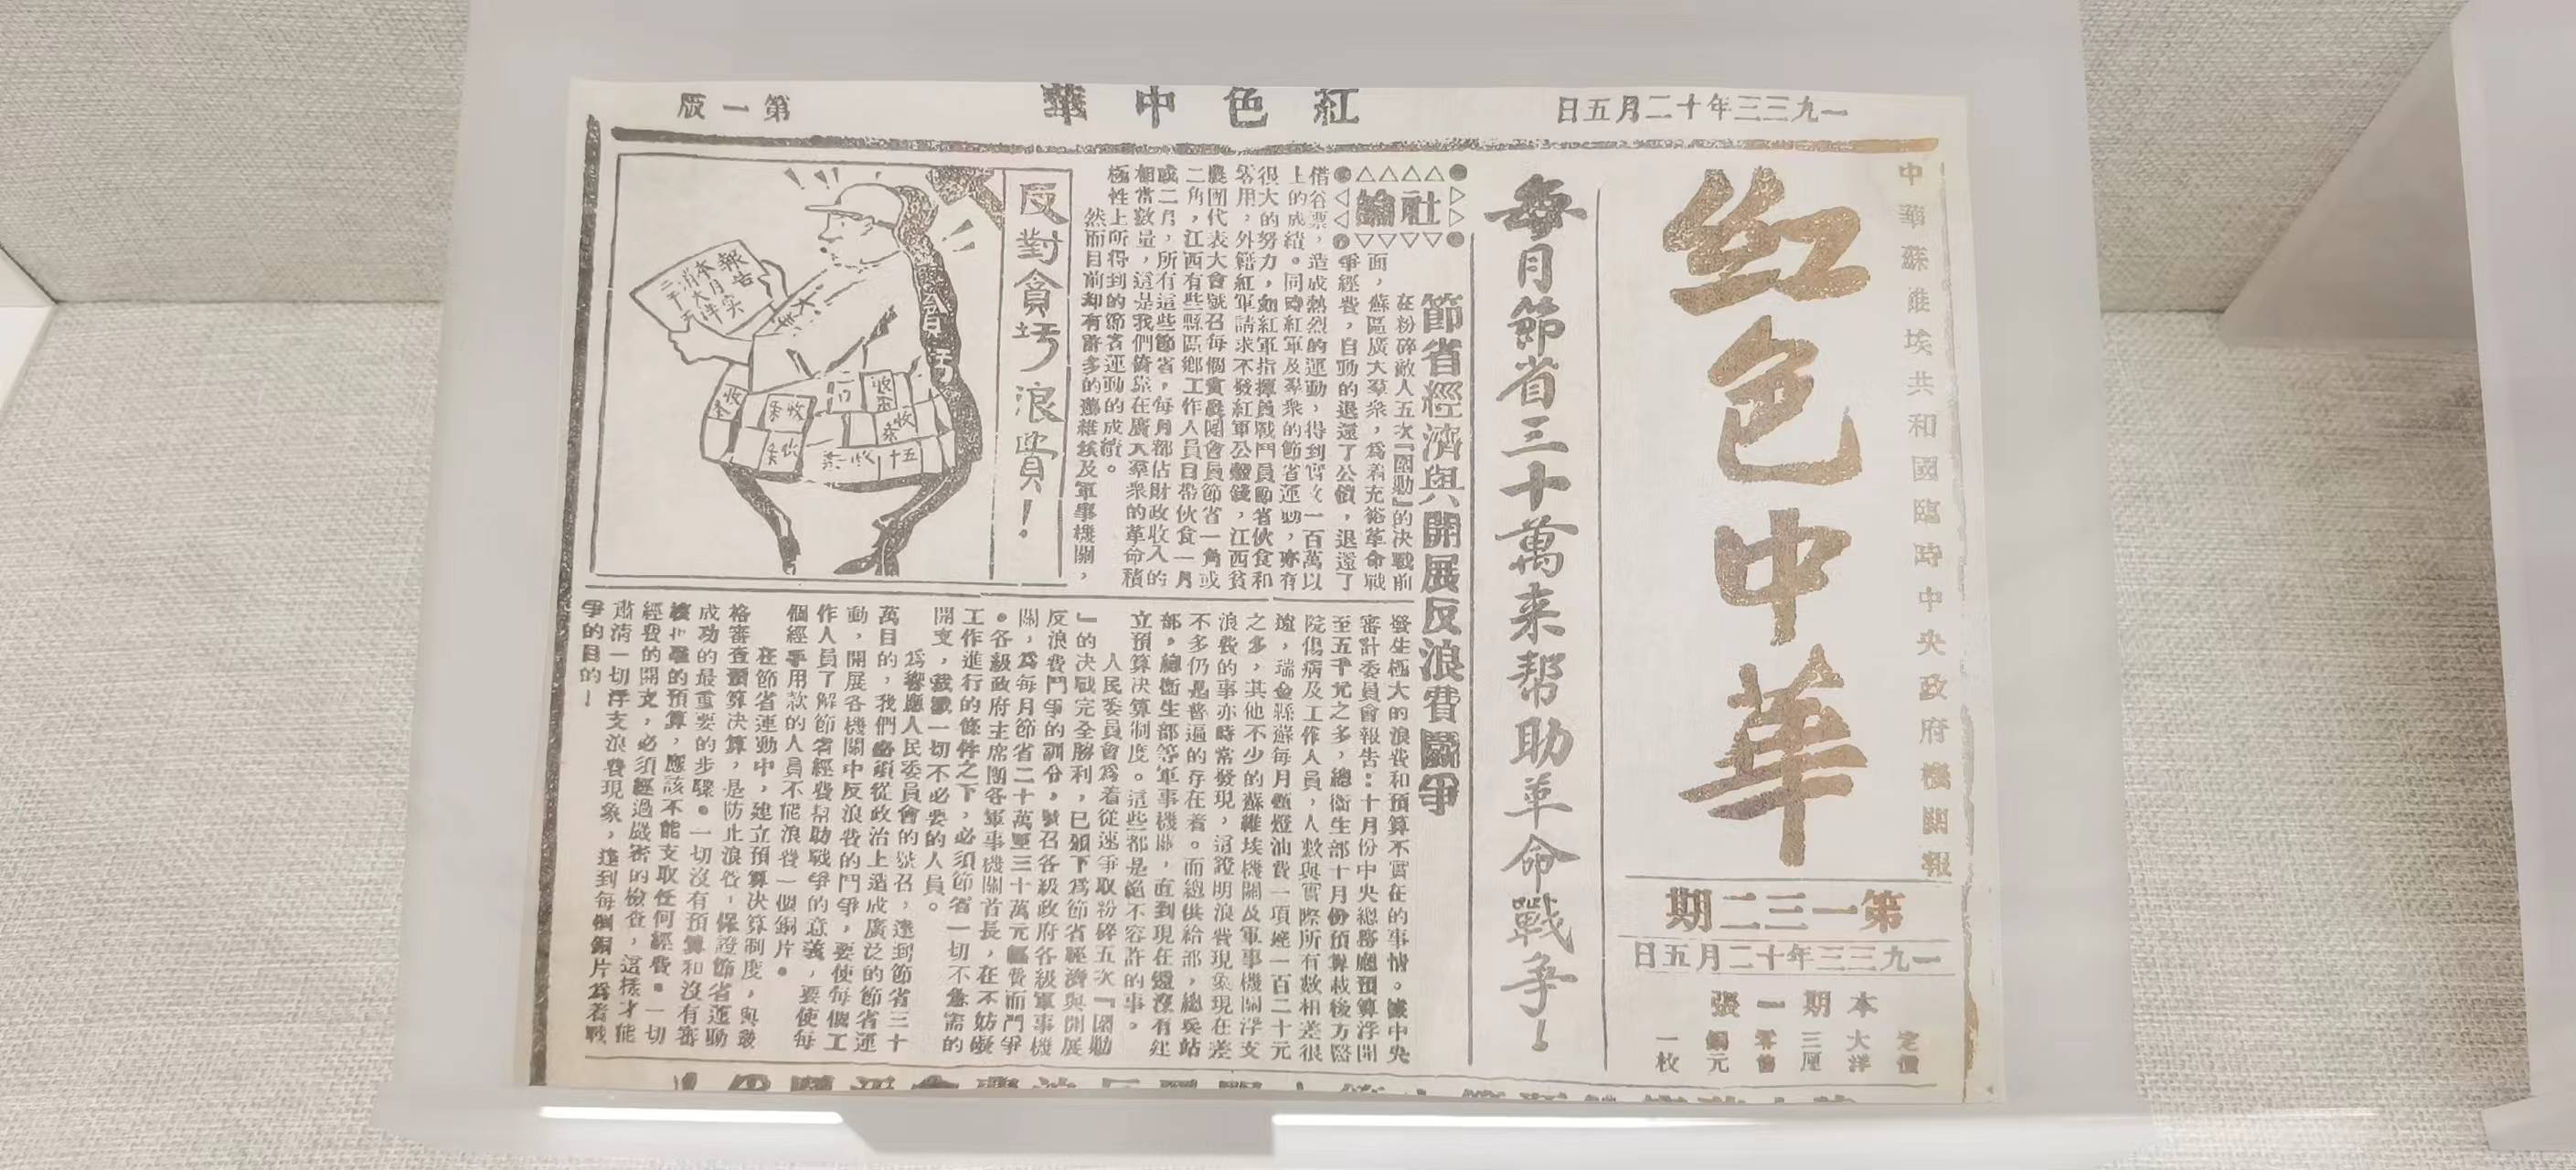 一九三三年十二月五日
紅色中華
第一版
中華蘇維埃共和國臨時中央政府機關報
紅色中華
第一三二期
一九三三年十二月五日
本期一張
定價
大洋
三厘
零售
銅元
一枚
每月節省三十萬来帮助革命戰争！
社論
節省經濟與開展反浪費鬭爭
在粉碎敵人五次『圍勦』的决戰前
面，蘇區廣大羣衆，爲着充裕革命戰
爭經費，自動的退還了公債，退還了
借谷票，造成熱烈的運動，得到實收一百萬以
上的成績。同時紅軍及羣衆的節省運動，亦有
很大的努力，如紅軍指揮員戰鬥員節省伙食和
零用，外籍紅軍請求不發紅軍公穀錢，江西貧
農團代表大會號召每個貧農團會員節省一角或
二角，江西有些縣區鄉工作人員自帶伙食一月
或二月，所有這些節省，每月都佔財政收入的
相當數量，這是我們倚靠在廣大羣衆的革命積
極性上所得到的節省運動的成績。
然而目前却有許多的蘇維埃及軍事機關，
發生極大的浪費和預算不實在的事情。據中央
審計委員會報告：十月份中央總務廳預算浮開
至五千元之多，總衞生部十月份預算載後方醫
院傷病及工作人員，人數與實際所有數相差很
遠，瑞金縣蘇每月領燈油費一項達一百二十元
之多，其他不少的蘇維埃機關及軍事機關浮支
浪費的事亦時常發現，這證明浪費現象現在差
不多仍是普遍的存在着。而總供給部，總兵站
部，總衞生部等軍事機關，直到現在還沒有建
立預算决算制度。這些都是絕不容許的事。
人民委員會爲着從速爭取粉碎五次『圍勦
』的决戰完全勝利，已頒下爲節省經濟與開展
反浪費鬥爭的訓令，號召各級政府各級軍事機
關，爲每月節省二十萬至三十萬元經費而鬥爭
。各級政府主席團各軍事機關首長，在不妨礙
工作進行的條件之下，必須節省一切不急需的
開支，裁減一切不必要的人員。
爲響應人民委員會的號召，達到節省三十
萬目的，我們必須從政治上造成廣泛的節省運
動，開展各機關中反浪費的鬥爭，要使每個工
作人員了解節省經費幫助戰爭的意義，要使每
個經手用款的人員不能浪費一個銅片。
在節省運動中，建立預算决算制度，與嚴
格審查預算决算，是防止浪費，保證節省運動
成功的最重要的步驟。一切沒有預算和沒有審
核批准的預算，應該不能支取任何經費。一切
經費的開支，必須經過嚴密的檢查，這樣才能
肅清一切浮支浪費現象，達到每個銅片爲着戰
爭的目的！
反對貪污浪費！
報告
本月实
消大洋
二千元
貪污
收条
收条
收条
收条
五十